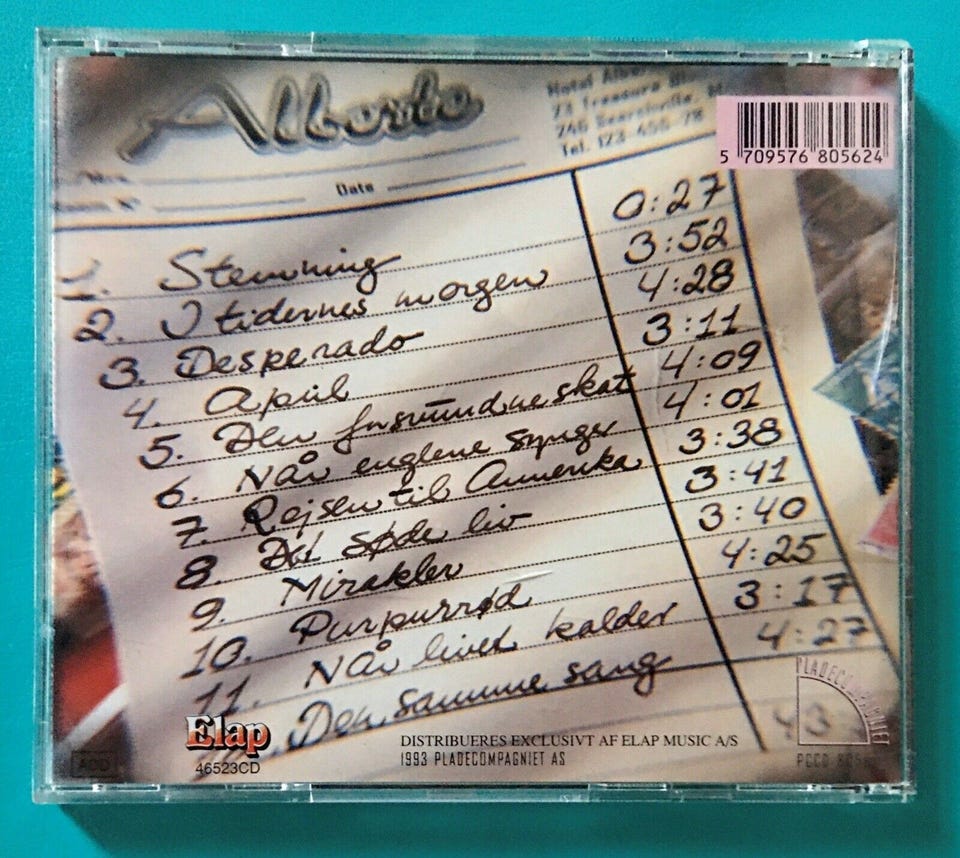 Alberto
Hotel
23 Treasure
246 Searchville,
Tel. 123-456-78
Date
5 709576 805624
1. Stemning 0:27
2. I tidernes morgen 3:52
3. Desperado 4:28
4. April 3:11
5. Den forsvundne skat 4:09
6. Når englene synger 4:01
7. Rejsen til Amerika 3:38
8. Det søde liv 3:41
9. Mirakler 3:40
10. Purpurrød 4:25
11. Når livet kalder 3:17
Den samme sang 4:27
PLADECOMPAGNIET
Elap
46523CD
DISTRIBUERES EXCLUSIVT AF ELAP MUSIC A/S
1993 PLADECOMPAGNIET AS
PCCD